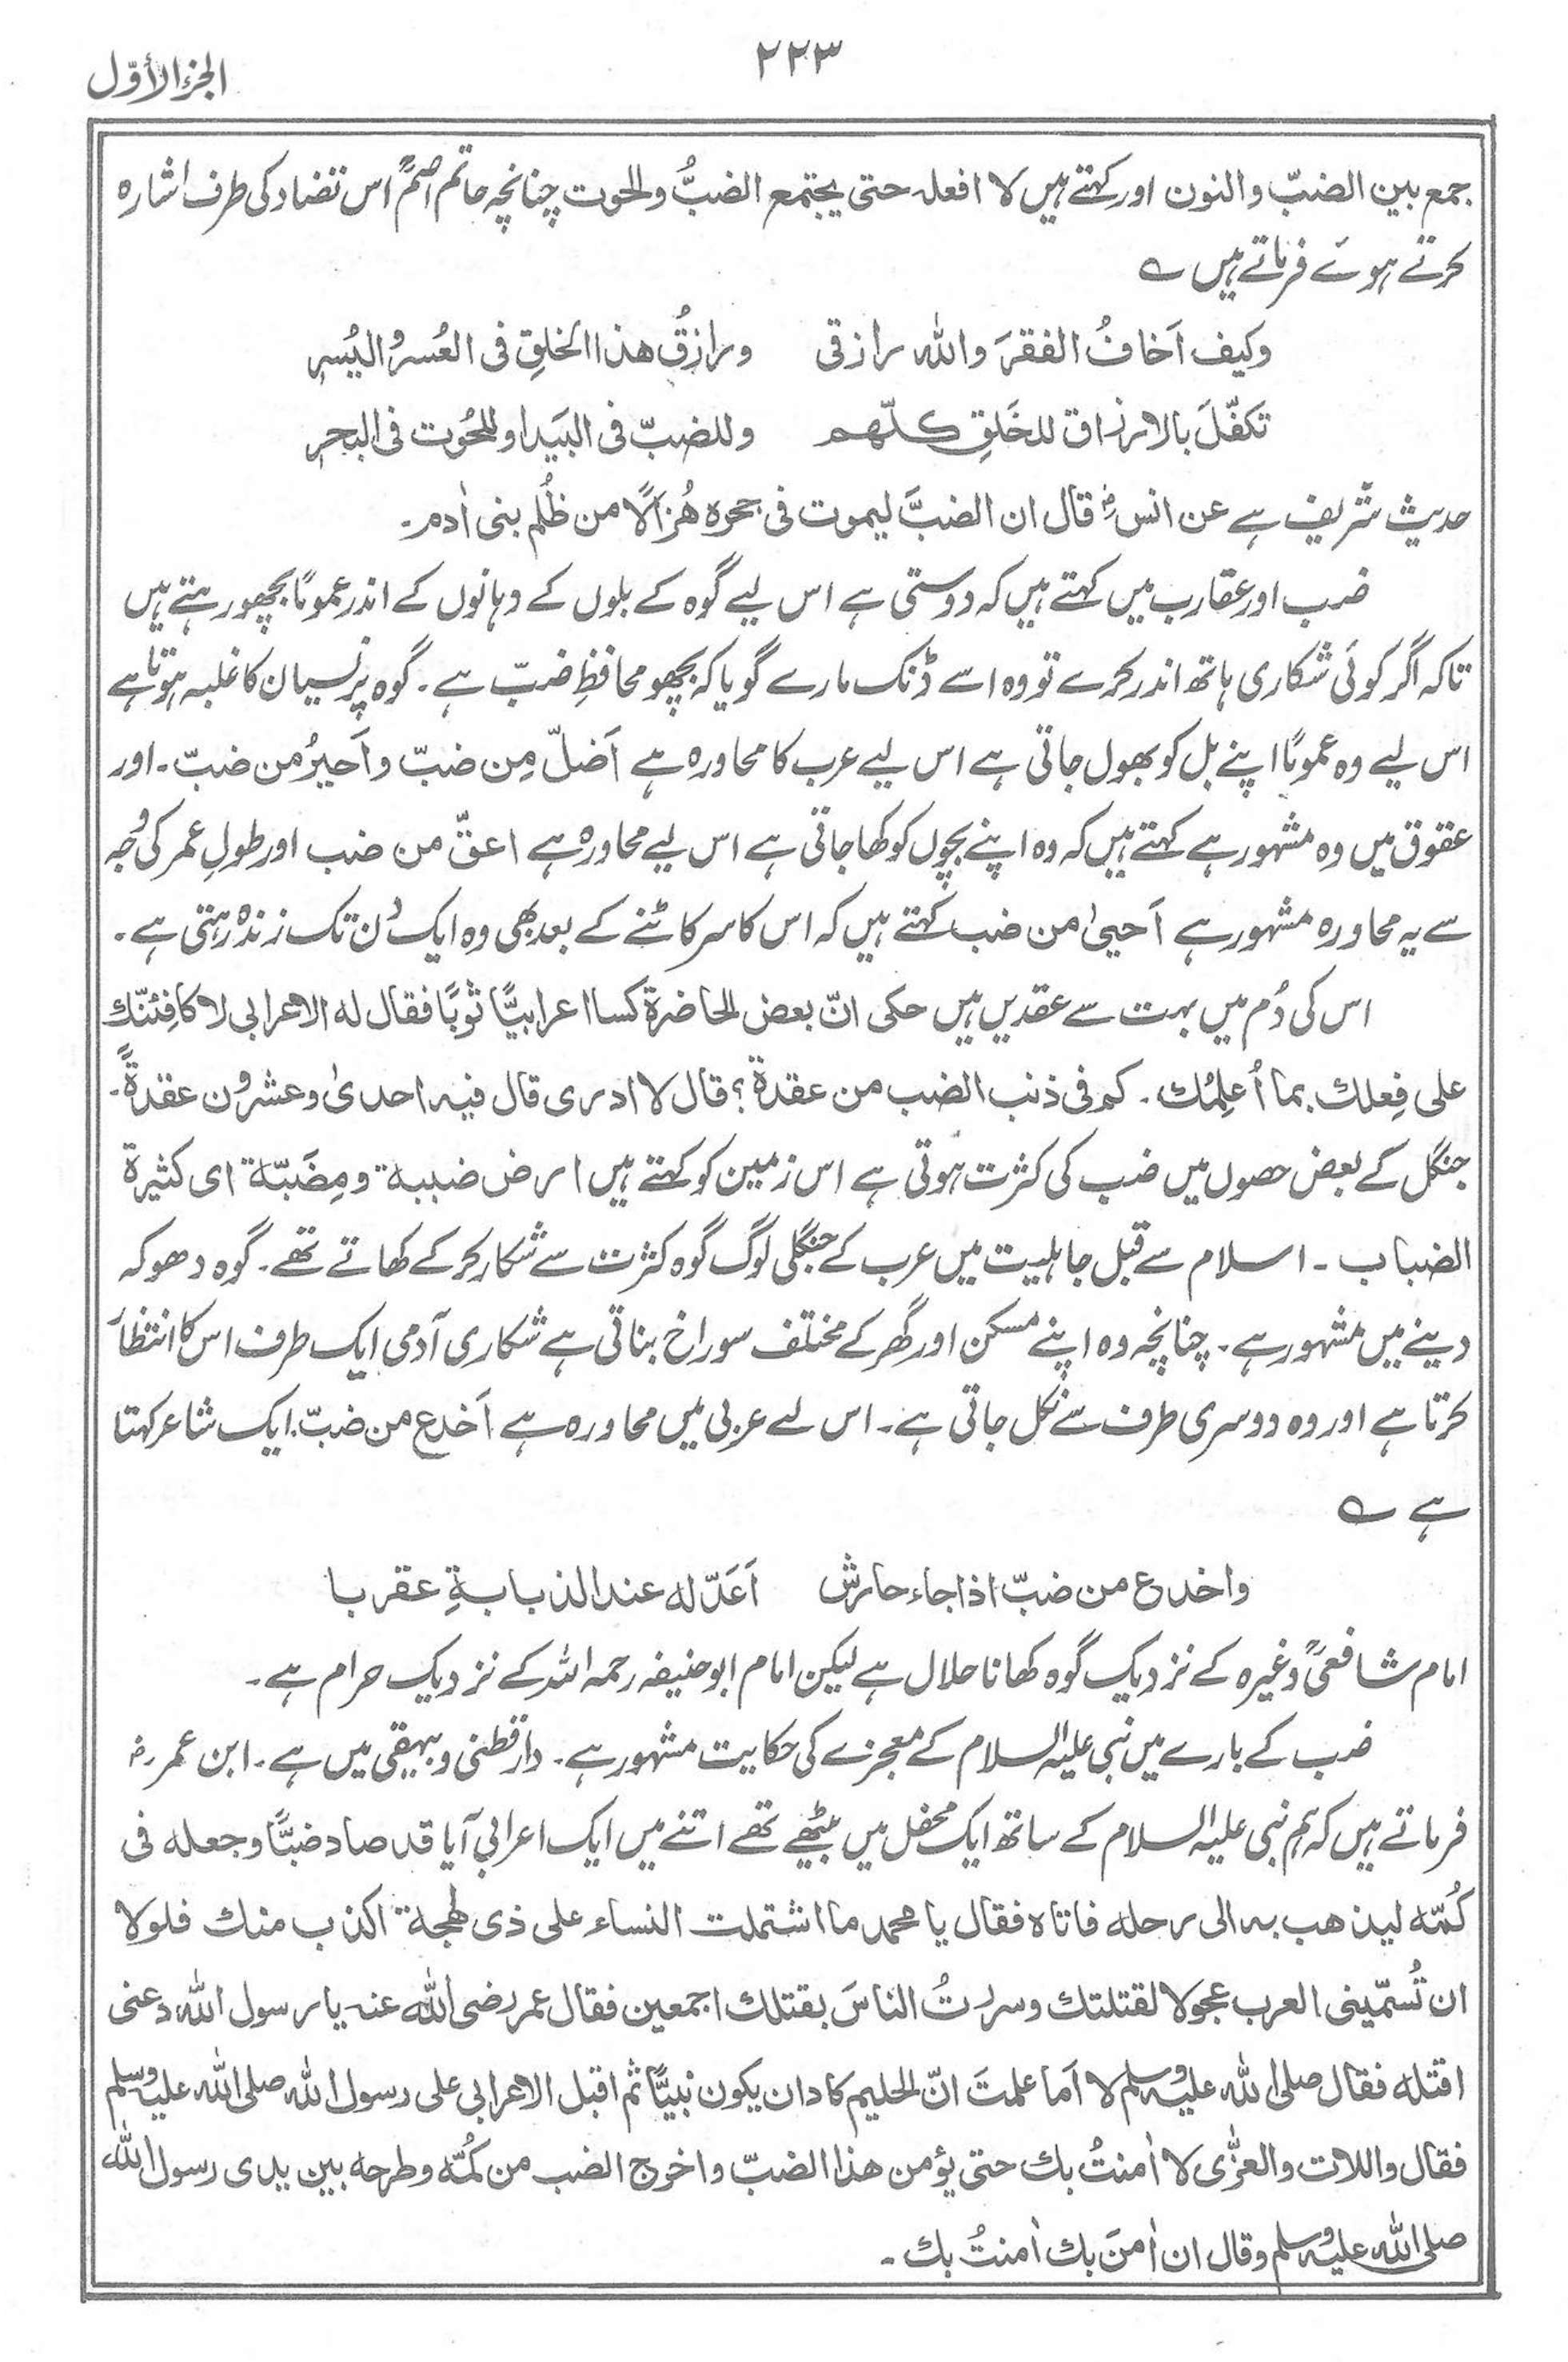 الجزء الأوّل
۲۲۳
جمع بین الضبّ والنون اور کہتے ہیں لا افعلہ حتی یجتمع الضبُّ والحوت چنانچہ حاتم اصمؒ اس تضاد کی طرف اشارہ
کرتے ہوئے فرماتے ہیں ؎
وکیف اَخافُ الفقرَ واللّٰہ رازقی ورازقُ ھذا الخلقِ فی العُسرِ والیُسرِ
تَکفّلَ بالارزاق للخَلقِ کلّھم وللضبّ فی البَیدا وللحُوت فی البحرِ
حدیث شریف ہے عن انسؓ قال ان الضبَّ لیموت فی جحرہ ھُزالًا من ظُلم بنی اٰدم۔
ضب اور عقارب میں کہتے ہیں کہ دوستی ہے اس لیے گوہ کے بلوں کے دہانوں کے اندر عمومًا بچھو رہتے ہیں
تاکہ اگر کوئی شکاری ہاتھ اندر کرے تو وہ اسے ڈنک مارے گویا کہ بچھو محافظِ ضبّ ہے۔ گوہ پر نسیان کا غلبہ ہوتا ہے
اس لیے وہ عمومًا اپنے بل کو بھول جاتی ہے اس لیے عرب کا محاورہ ہے اَضلّ مِن ضبّ واَحیرُ من ضبّ۔ اور
عقوق میں وہ مشہور ہے کہتے ہیں کہ وہ اپنے بچوں کو کھا جاتی ہے اس لیے محاورہ ہے اعقّ من ضب اور طولِ عمر کی وجہ
سے یہ محاورہ مشہور ہے اَحییٰ من ضب کہتے ہیں کہ اس کا سر کاٹنے کے بعد بھی وہ ایک دن تک زندہ رہتی ہے۔
اس کی دُم میں بہت سے عقدیں ہیں حکی انّ بعض الحاضرۃ کسا اعرابیًّا ثوبًا فقال لہ الاعرابی لاکافِئنّک
علی فِعلک بما اُعلِمُک۔ کم فی ذنب الضب من عقدۃ؟ قال لا ادری قال فیہ احدیٰ وعشرون عقدۃً۔
جنگل کے بعض حصوں میں ضب کی کثرت ہوتی ہے اس زمین کو کہتے ہیں ارض ضببۃ ومِضَبّۃ ای کثیرۃ
الضباب۔ اسلام سے قبل جاہلیت میں عرب کے جنگلی لوگ گوہ کثرت سے شکار کرکے کھاتے تھے۔ گوہ دھوکہ
دینے میں مشہور ہے۔ چنانچہ وہ اپنے مسکن اور گھر کے مختلف سوراخ بناتی ہے شکاری آدمی ایک طرف اس کا انتظار
کرتا ہے اور وہ دوسری طرف سے نکل جاتی ہے۔ اس لے عربی میں محاورہ ہے اَخدع من ضبّ۔ ایک شاعر کہتا
ہے ؎
واخدع من ضبّ اذا جاء حارش اَعَدّ لہ عند الذبابۃِ عقربا
امام شافعیؒ وغیرہ کے نزدیک گوہ کھانا حلال ہے لیکن امام ابوحنیفہ رحمہ اللہ کے نزدیک حرام ہے۔
ضب کے بارے میں نبی علیہ السلام کے معجزے کی حکایت مشہور ہے۔ دارقطنی وبیہقی میں ہے۔ ابن عمر رضؓ
فرماتے ہیں کہ ہم نبی علیہ السلام کے ساتھ ایک محفل میں بیٹھے تھے اتنے میں ایک اعرابی آیا قد صاد ضبًّا وجعلہ فی
کُمّہ لیذھب بہ الی رحلہ فاتاہ فقال یا محمد ما اشتملت النساء علی ذی لھجۃ اکذب منک فلولا
ان تُسمّینی العرب عجولا لقتلتک وسررتُ الناسَ بقتلک اجمعین فقال عمر رضی اللّٰہ عنہ یا رسول اللّٰہ دعنی
اقتلہ فقال صلی اللّٰہ علیہ وسلم لا اَما علمتَ انّ الحلیم کاد ان یکون نبیًّا ثم اقبل الاعرابی علی رسول اللّٰہ صلی اللّٰہ علیہ وسلم
فقال واللات والعزّٰی لا اٰمنتُ بک حتی یؤمن ھذا الضبّ واخرج الضب من کُمّہ وطرحہ بین یدی رسول اللّٰہ
صلی اللّٰہ علیہ وسلم وقال ان اٰمنَ بک اٰمنتُ بک۔